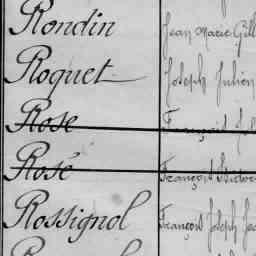 Rondin Jean Marie Gill
Roquet Joseph Julien
Rose François
Rosé François
Rossignol François Joseph